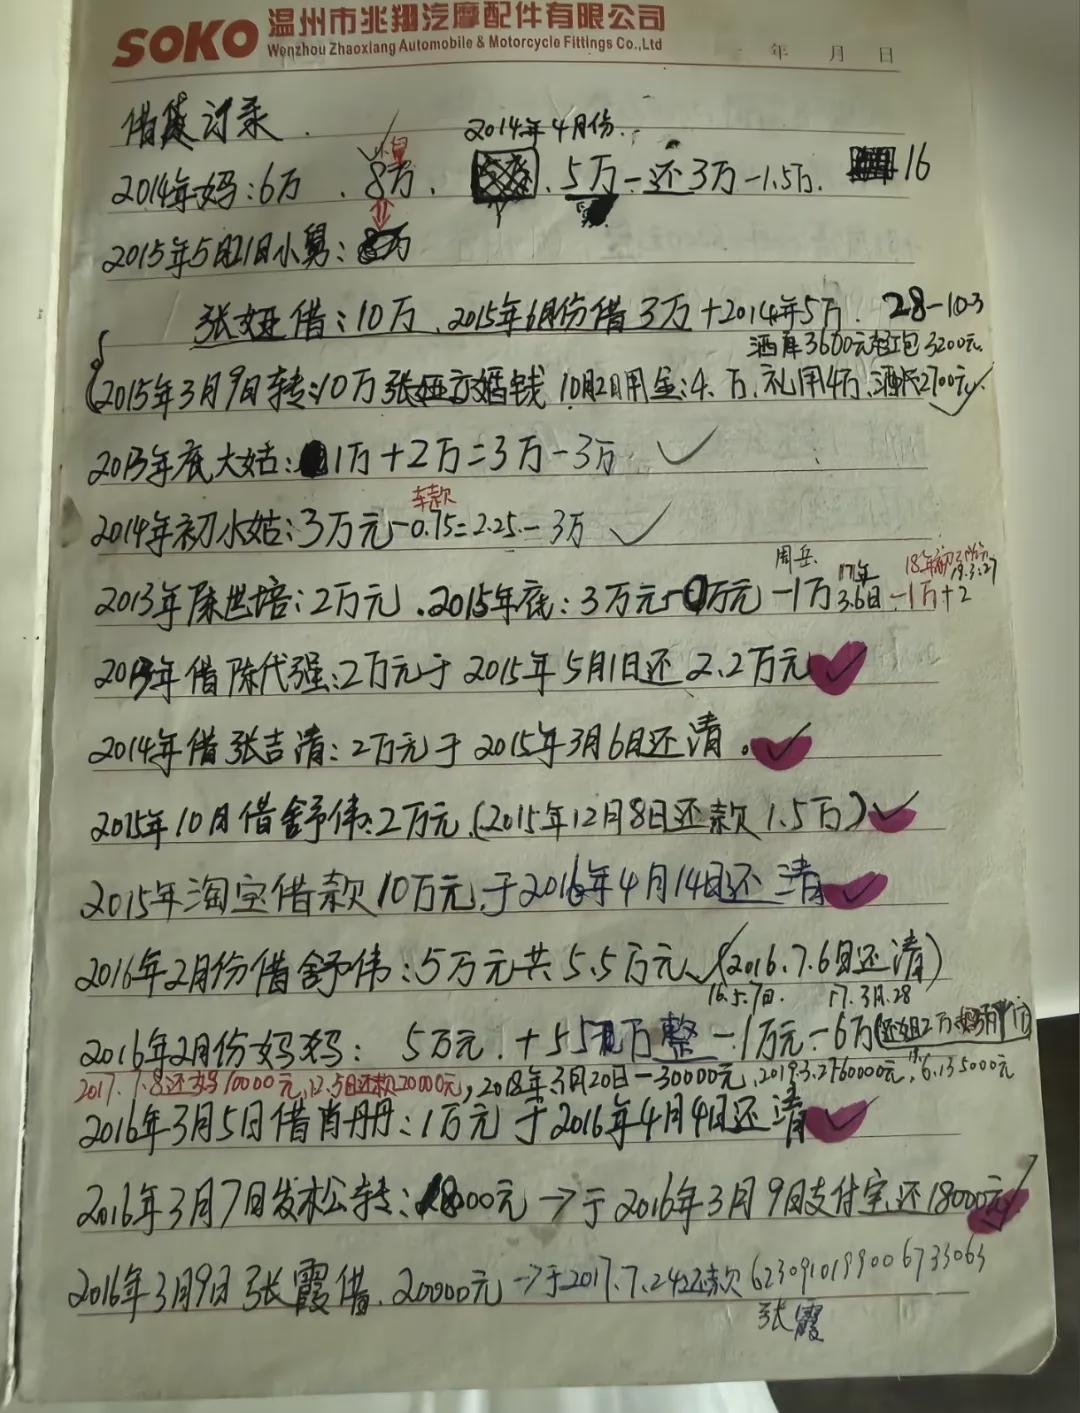 SOKO 温州市兆翔汽摩配件有限公司
Wenzhou Zhaoxiang Automobile & Motorcycle Fittings Co.,Ltd
年 月 日
借贷记录
2014年4月份
小舅
2014年妈:6万、8万、5万-还3万-1.5万. 16
2015年5月21日小舅:
张娅借:10万、2015年6月份借3万+2014年5万. 28-10-3
酒席3600元 红包3200元
2015年3月9日转:10万张娅 婚钱 10月2日用金:4.万,礼用4万,酒 2700元
2013年底大姑:1万+2万=3万-3万
车款
2014年初小姑:3万元-0.75=2.25-3万
周岳 17年 18年 19.3.27
2013年陈世培:2万元、2015年底:3万元 万元-1万 3.6日 -1万+2
2013年借陈代强:2万元于2015年5月1日还2.2万元
2014年借张吉清:2万元于2015年3月6日还清。
2015年10月借舒伟:2万元(2015年12月8日还款1.5万)
2015年淘宝借款10万元,于2016年4月14日还清
2016年2月份借舒伟:5万元共5.5万元、(2016.7.6日还清)
16.5.7日. 17.3月.28
2016年2月份妈妈: 5万元.+5 万整-1万元-6万(还姐2万
2017.7.8还妈10000元,12.5日还款20000元,2018年3月20日-30000元,2019.3.27 60000元, 6.13 5000元
2016年3月5日借肖丹丹:1万元于2016年4月4日还清
2016年3月7日发松转:18000元→于2016年3月9日支付宝还18000元
2016年3月9日张霞借.20000元→于2017.7.24还款6230910199006733063
张霞